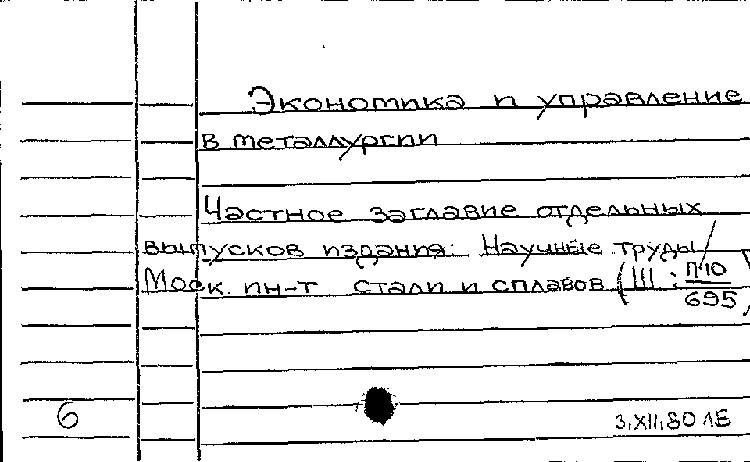 Экономика и управление
в металлургии
Частное заглавие отдельных
выпусков издания: Научные труды /
Моск. ин-т стали и сплавов (III: П10/695)
6
3.XII.80 ЛБ